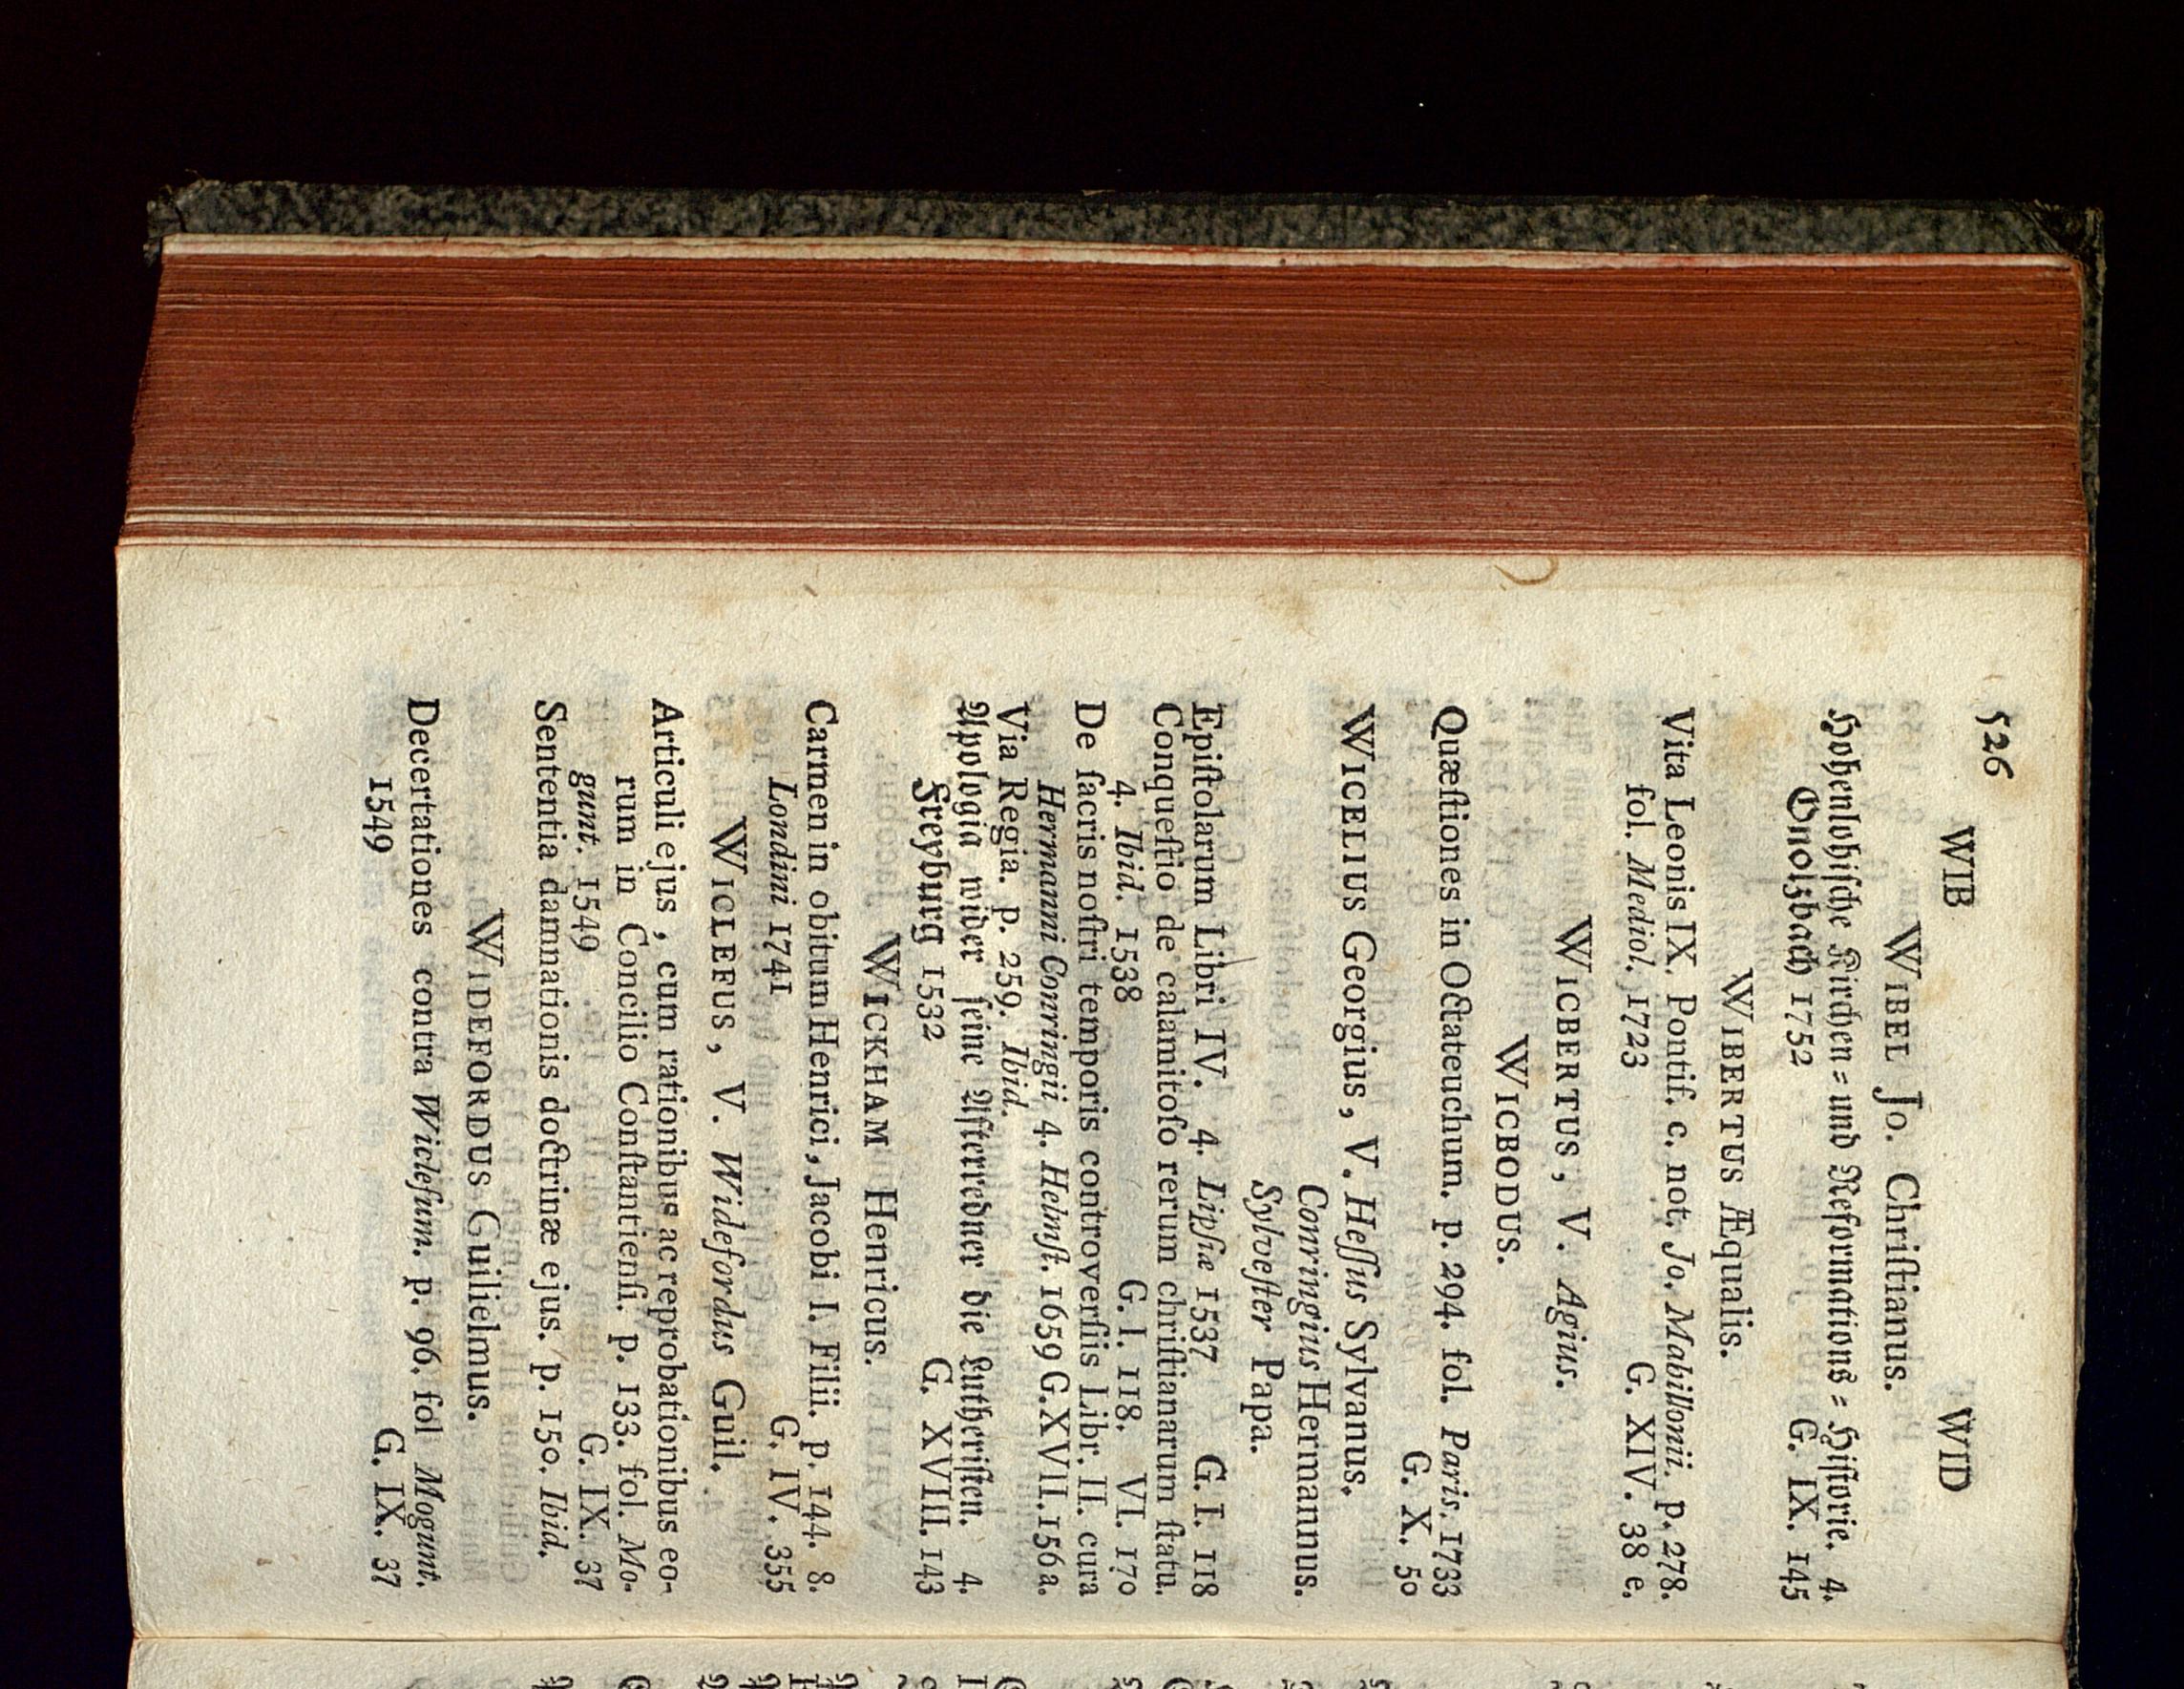 526
WIB WID
WIBEL Jo. Chriſtianus.
Hohenlohiſche Kirchen= und Reformations= Hiſtorie. 4.
Onolzbach 1752 G. IX. 145
WIBERTUS Æqualis.
Vita Leonis IX. Pontif. c. not. Jo. Mabillonii. p. 278.
fol. Mediol. 1723 G. XIV. 38 e.
WICBERTUS, V. Agius.
WICBODUS.
Quæſtiones in Octateuchum. p. 294. fol. Paris. 1733
G. X. 50
WICELIUS Georgius, V. Heſſus Sylvanus.
Conringius Hermannus.
Sylveſter Papa.
Epiſtolarum Libri IV. 4. Lipſiæ 1537 G. I. 118
Conqueſtio de calamitoſo rerum chriſtianarum ſtatu.
4. Ibid. 1538 G. I. 118. VI. 170
De ſacris noſtri temporis controverſiis Libr. II. cura
Hermanni Conringii 4. Helmſt. 1659 G. XVII. 156 a.
Via Regia. p. 259. Ibid.
Apologia wider ſeine Afterredner die Lutheriſten. 4.
Freyburg 1532 G. XVIII. 143
WICKHAM Henricus.
Carmen in obitum Henrici, Jacobi I. Filii. p. 144. 8.
Londini 1741 G. IV. 355
WICLEFUS, V. Widefordus Guil.
Articuli ejus, cum rationibus ac reprobationibus eo-
rum in Concilio Conſtantienſi. p. 133. fol. Mo-
gunt. 1549 G. IX. 37
Sententia damnationis doctrinæ ejus. p. 150. Ibid.
WIDEFORDUS Guilielmus.
Decertationes contra Wiclefum. p. 96. fol Mogunt.
1549 G. IX. 37